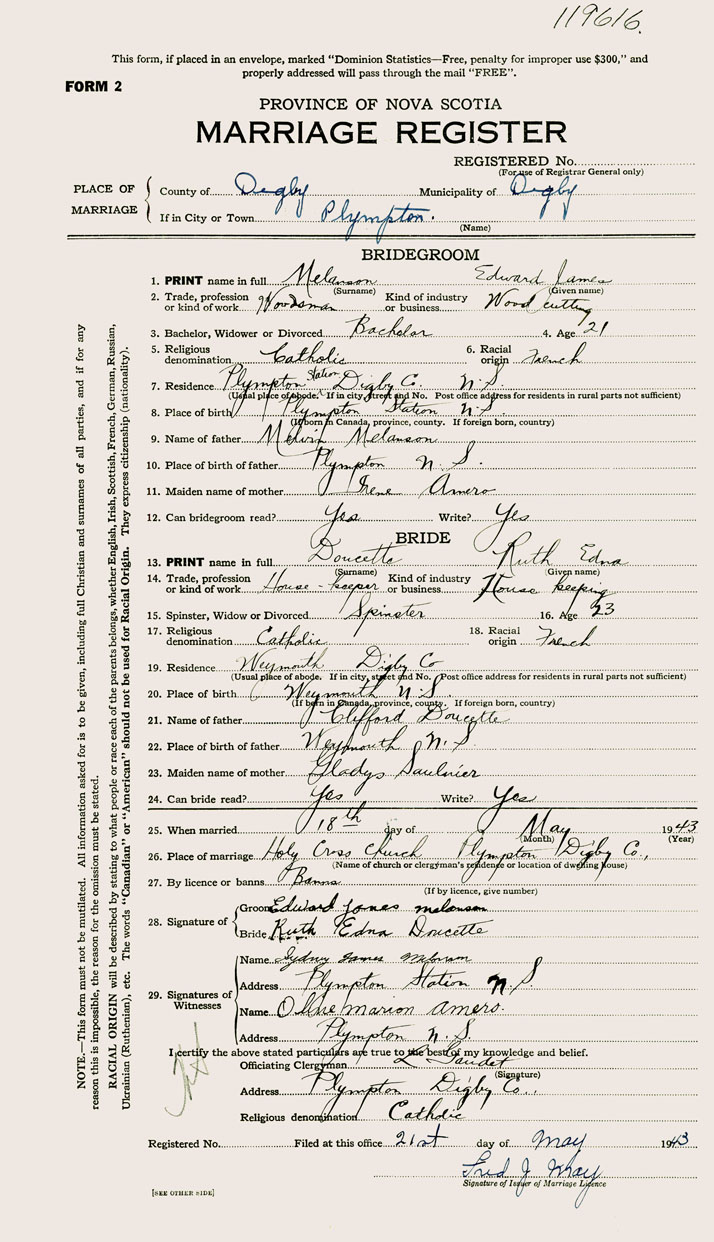 119616.
This form, if placed in an envelope, marked "Dominion Statistics—Free, penalty for improper use $300," and
properly addressed will pass through the mail "FREE".
FORM 2
PROVINCE OF NOVA SCOTIA
MARRIAGE REGISTER
REGISTERED No.
(For use of Registrar General only)
PLACE OF MARRIAGE
County of Digby Municipality of Digby
If in City or Town Plympton.
(Name)
BRIDEGROOM
1. PRINT name in full Melanson Edward James
(Surname) (Given name)
2. Trade, profession or kind of work Woodsman Kind of industry or business Wood cutting
3. Bachelor, Widower or Divorced Bachelor 4. Age 21
5. Religious denomination Catholic 6. Racial origin French
7. Residence Plympton Station Digby Co. N.S.
(Usual place of abode. If in city, street and No. Post office address for residents in rural parts not sufficient)
8. Place of birth Plympton Station N.S.
(If born in Canada, province, county. If foreign born, country)
9. Name of father Melvin Melanson
10. Place of birth of father Plympton N.S.
11. Maiden name of mother Irene Amero
12. Can bridegroom read? Yes Write? Yes
BRIDE
13. PRINT name in full Doucette Ruth Edna
(Surname) (Given name)
14. Trade, profession or kind of work House-keeper Kind of industry or business House keeping
15. Spinster, Widow or Divorced Spinster 16. Age 23
17. Religious denomination Catholic 18. Racial origin French
19. Residence Weymouth Digby Co
(Usual place of abode. If in city, street and No. Post office address for residents in rural parts not sufficient)
20. Place of birth Weymouth N.S.
(If born in Canada, province, county. If foreign born, country)
21. Name of father Clifford Doucette
22. Place of birth of father Weymouth N.S
23. Maiden name of mother Gladys Saulnier
24. Can bride read? Yes Write? Yes
25. When married 18th day of May 1943
(Month) (Year)
26. Place of marriage Holy Cross Church Plympton Digby Co.,
(Name of church or clergyman's residence or location of dwelling house)
27. By licence or banns Banns
(If by licence, give number)
28. Signature of
Groom Edward James melanson
Bride Ruth Edna Doucette
29. Signatures of Witnesses
Name Sydney James
Address Plympton Station N.S
Name Ollie marion amero.
Address Plympton N.S.
I certify the above stated particulars are true to the best of my knowledge and belief.
Officiating Clergyman L Gaudet
(Signature)
Address Plympton Digby Co.,
Religious denomination Catholic
Registered No. Filed at this office 21st day of May 1943
Fred J May
Signature of Issuer of Marriage Licence
[SEE OTHER SIDE]
NOTE.—This form must not be mutilated. All information asked for is to be given, including full Christian and surnames of all parties, and if for any
reason this is impossible, the reason for the omission must be stated.
RACIAL ORIGIN will be described by stating to what people or race each of the parents belongs, whether English, Irish, Scottish, French, German, Russian,
Ukrainian (Ruthenian), etc. The words "Canadian" or "American" should not be used for Racial Origin. They express citizenship (nationality).